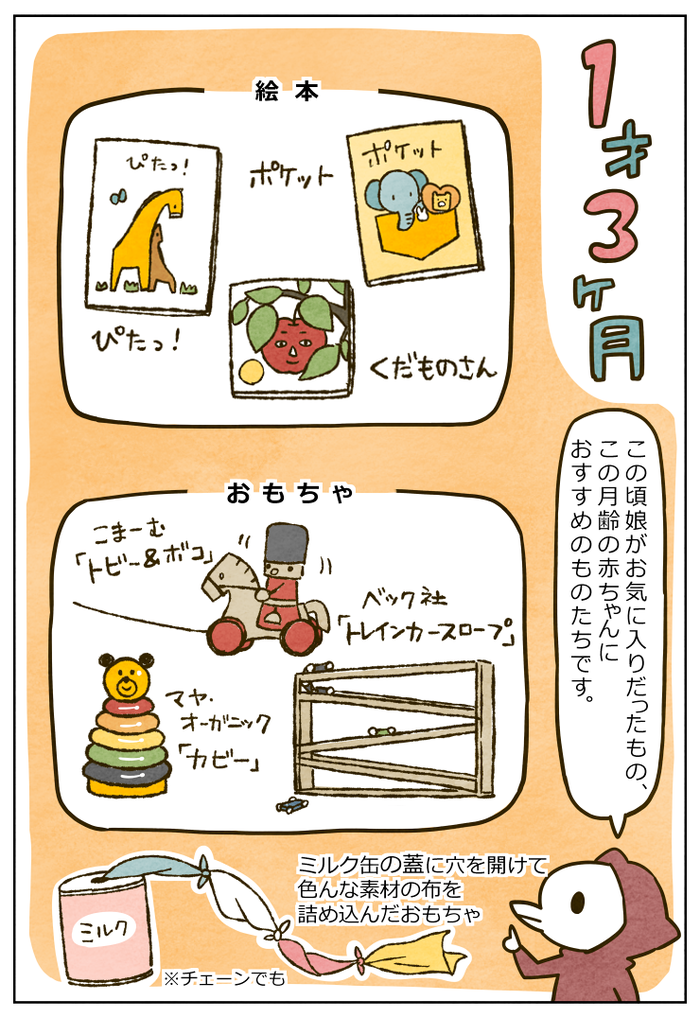 1才3ヶ月
絵本
ぴたっ!
ぴたっ!
ポケット
ポケット
くだものさん
この頃娘がお気に入りだったもの、
この月齢の赤ちゃんに
おすすめのものたちです。
おもちゃ
こまーむ
「トビー&ボコ」
ベック社
「トレインカースロープ」
マヤ・
オーガニック
「カビー」
ミルク缶の蓋に穴を開けて
色んな素材の布を
詰め込んだおもちゃ
ミルク
※チェーンでも